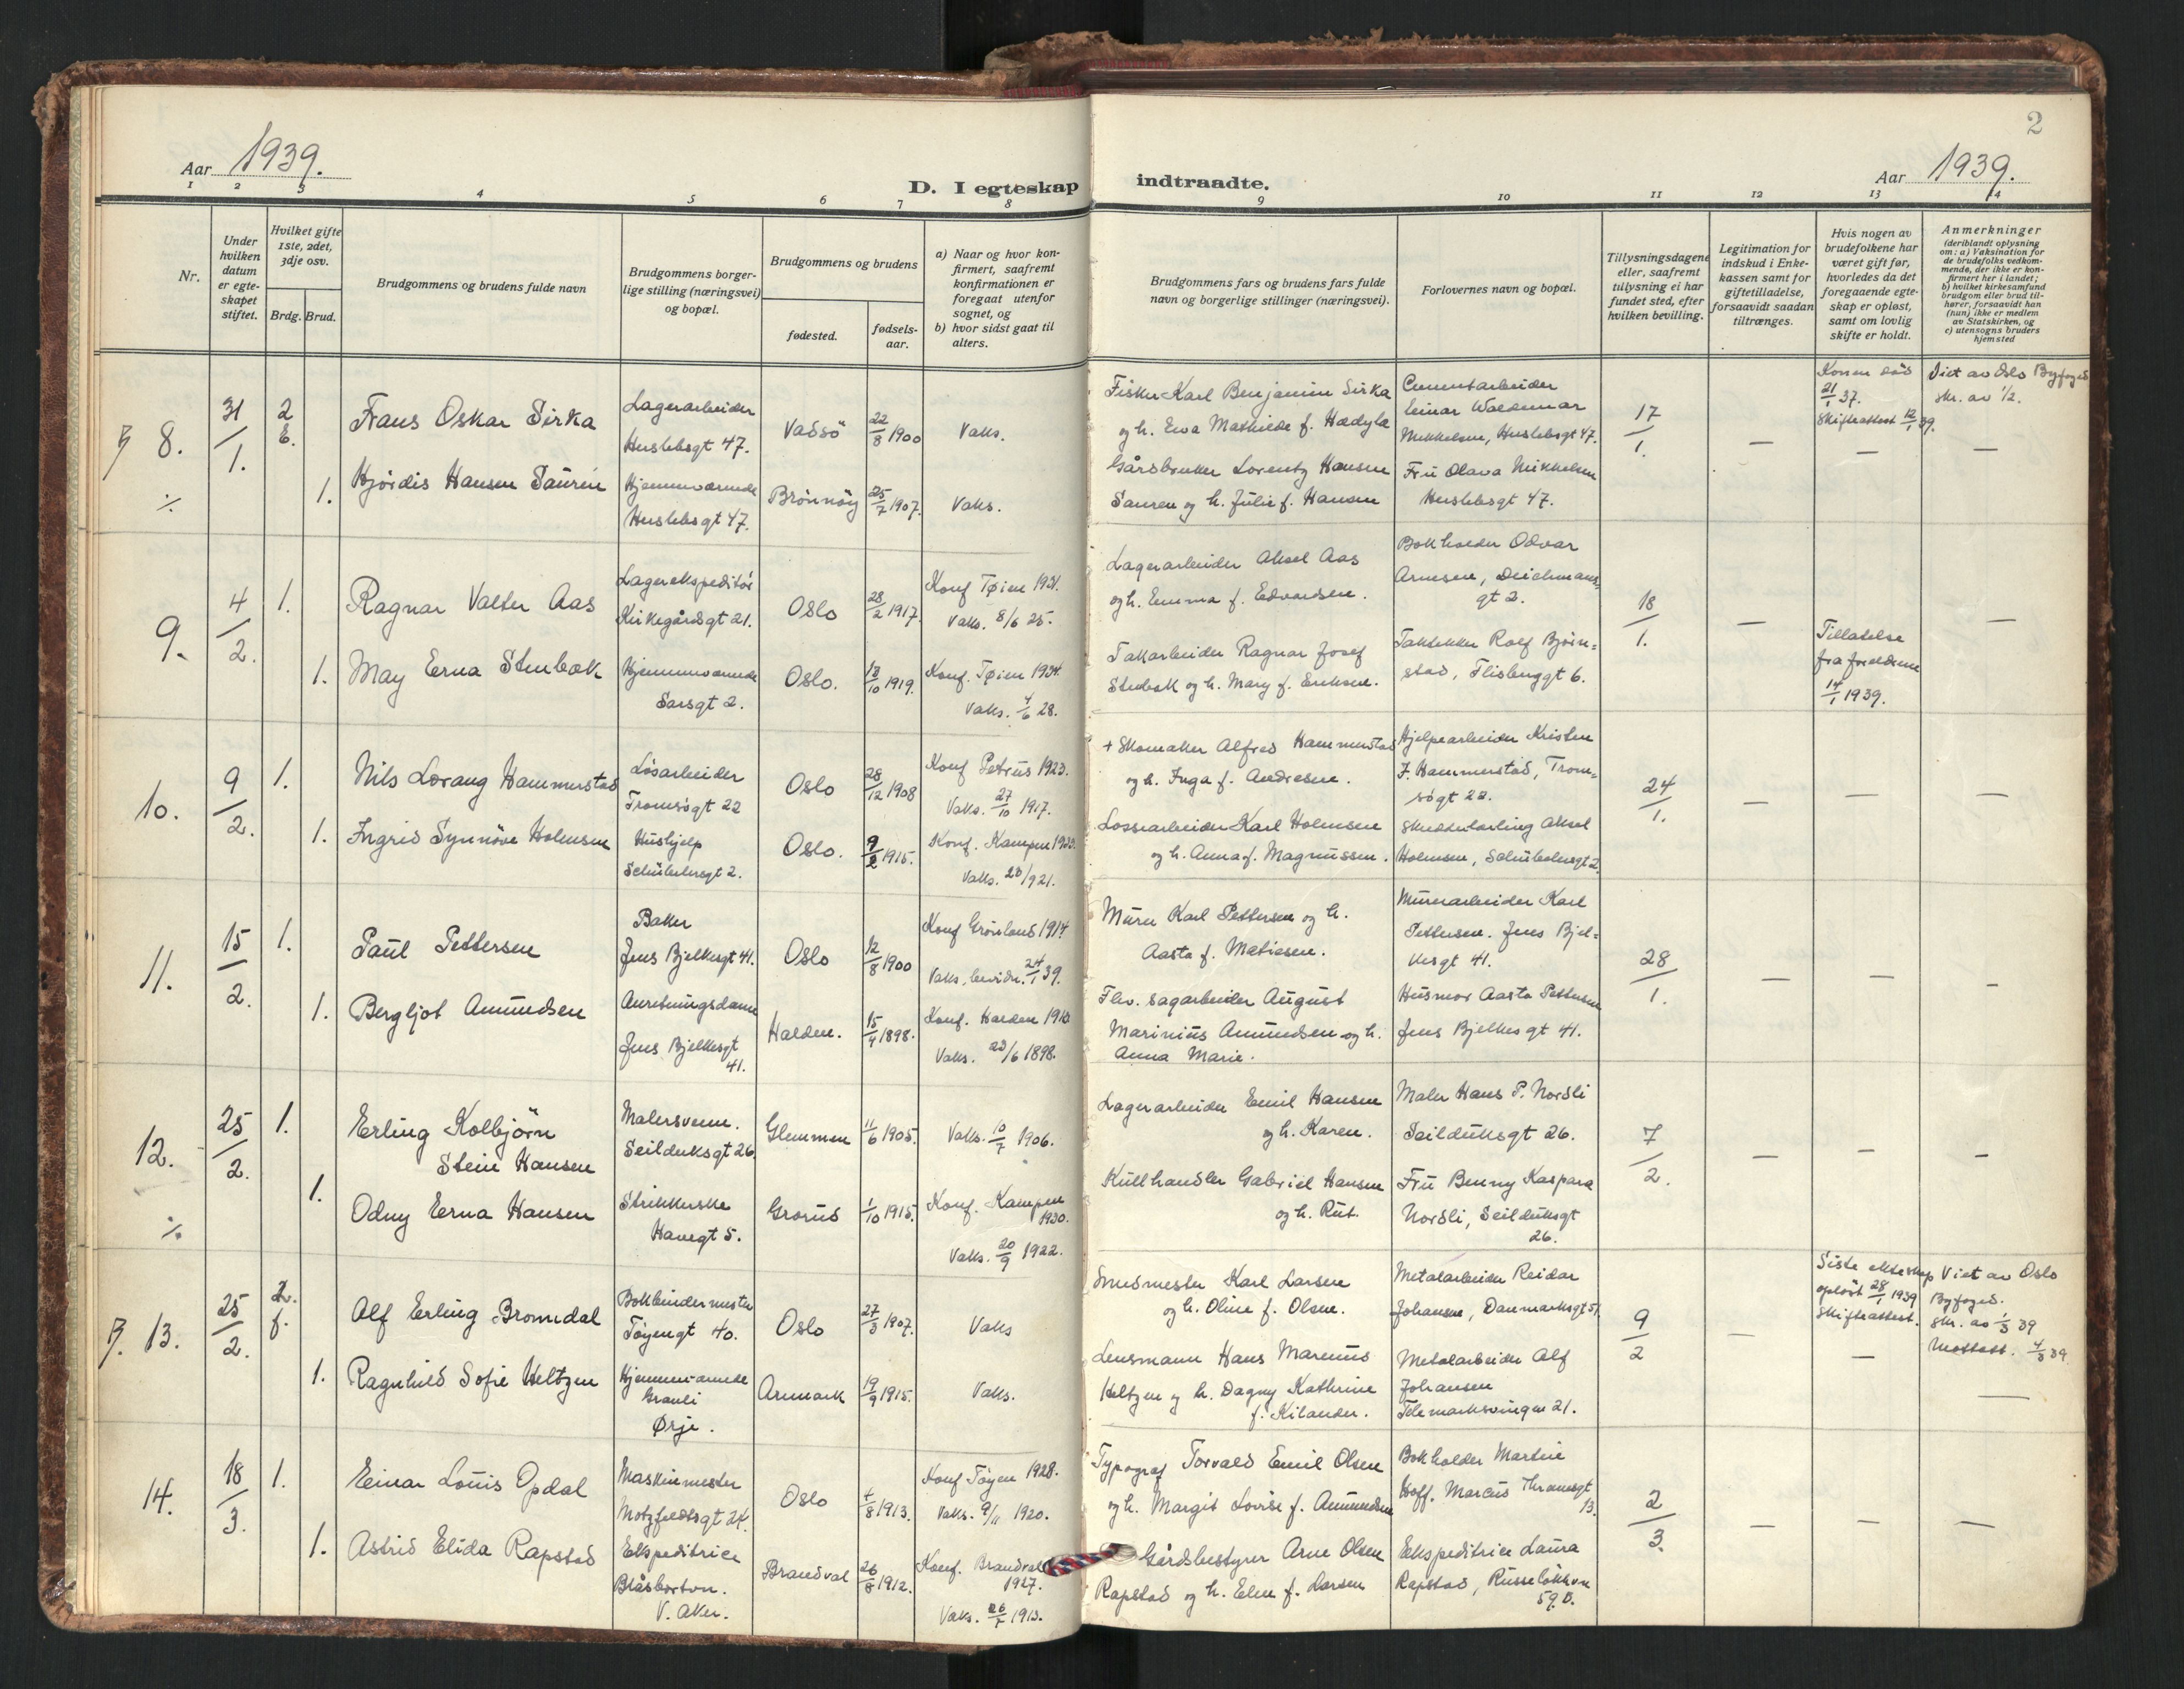 2
Aar 1939.
D. I egteskap indtraadte.
Aar 1939.
1 2 3 4 5 6 7 8 9 10 11 12 13 14
Nr.
Under hvilken datum er egteskapet stiftet.
Hvilket gifte 1ste, 2det, 3dje osv.
Brdg. Brud.
Brudgommens og brudens fulde navn
Brudgommens borgerlige stilling (næringsvei) og bopæl.
Brudgommens og brudens
fødested.
fødselsaar.
a) Naar og hvor konfirmert, saafremt konfirmationen er foregaat utenfor sognet, og
b) hvor sidst gaat til alters.
Brudgommens fars og brudens fars fulde navn og borgerlige stillinger (næringsvei).
Forlovernes navn og bopæl.
Tillysningsdagene eller, saafremt tillysning ei har fundet sted, efter hvilken bevilling.
Legitimation for indskud i Enkekassen samt for giftetilladelse, forsaavidt saadan tiltrænges.
Hvis nogen av brudefolkene har været gift før, hvorledes da det foregaaende egteskap er opløst, samt om lovlig skifte er holdt.
Anmerkninger (deriblandt oplysning om: a) Vaksination for de brudefolks vedkommende, der ikke er konfirmert her i landet; b) hvilket kirkesamfund brudgom eller brud tilhører, forsaavidt han (hun) ikke er medlem av Statskirken, og c) utensogns bruders hjemsted
8.
31/1.
2
E.
Frans Oskar Sirka
Lagerarbeider
Herslebsgt 47.
Vadsö
22/8 1900
Vaks.
Fisker Karl Benjamin Sirka
og h. Eva Mathilde f. Hædyla
Cementarbeider
Einar Waldemar
Mikkelsen, Herslebsgt 47.
17/1.
—
Konen död
21/1 37.
Skifteattest 12/1 39.
—
Viet av Oslo Byfoged
skr. av 1/2.
—
1.
Hjördis Hansen Sauren
Hjemmeværende
Herslebsgt 47.
Brönnöy
25/7 1907.
Vaks.
Gårdbruker Lorentz Hansen
Sauren og h. Julie f. Hansen
Fru Olava Mikkelsen
Herslebsgt 47.
9.
4/2.
1.
Ragnar Valter Aas
Lagerekspeditör
Kirkegårdsgt 21.
Oslo
28/2 1917.
Konf Tøien 1931.
Vaks. 8/6 25.
Lagerarbeider Aksel Aas
og h. Emma f. Edvardsen.
Bokholder Odvar
Arnesen, Deichmans-
gt 2.
18/1.
—
—
1.
May Erna Stenbæk
Hjemmeværende
Sarsgt 2.
Oslo.
13/10 1919.
Konf. Tøien 1934.
Vaks. 4/6 28.
Takarbeider Ragnar Josef
Stenbæk og h. Mary f. Eriksen.
Taktekker Rolf Bjørn-
stad, Flisberggt 6.
Tilladelse
fra foreldrene
14/1 1939.
10.
9/2.
1.
Nils Lorang Hammerstad
Lösarbeider
Tromsögt 22
Oslo
28/12 1908
Konf Petrus 1923.
Vaks. 27/10 1917.
+ Skomaker Alfred Hammerstad
og h. Inga f. Andresen.
Hjelpearbeider Kristen
F. Hammerstad, Trom-
sögt 22.
24/1.
—
—
—
1.
Ingrid Synnöve Holmsen
Hushjelp
Schübelersgt 2.
Oslo.
9/2 1915.
Konf. Kampen
Vaks. 28/9 21.
Lossearbeider Karl Holmsen
og h. Anna f. Magnussen.
Skredderlærling Aksel
Holmsen, Schübelersgt 2.
11.
15/2.
1.
Paul Pettersen
Baker
Jens Bjelkesgt 41.
Oslo
12/8 1900
Konf Grönland 1914
Vaks. bevidn. 24/1 39.
Murer Karl Pettersen og h.
Aasta f. Matiesen.
Murerarbeider Karl
Pettersen. Jens Bjel-
kesgt 41.
28/1.
—
—
—
1.
Bergljot Amundsen
Anretningsdame
Jens Bjelkesgt
41.
Halden.
15/4 1898.
Konf. Halden 1913
Vaks. 23/6 1898.
Flv. sagarbeider August
Marinius Amundsen og h.
Anna Marie.
Husmor Aasta Pettersen
Jens Bjelkes gt 41.
12.
25/2.
1.
Erling Kolbjörn
Stein Hansen
Malersvenn.
Seilduksgt 26.
Glemmen
11/6 1905.
Vaks. 10/7 1906.
Lagerarbeider Emil Hansen
og h. Karen.
Maler Hans P. Nordli
Seilduksgt 26.
7/2.
—
—
—
1.
Odny Erna Hansen
Strikkerske
Havegt 5.
Grorud
1/10 1915.
Konf. Kampen
1930.
Vaks. 20/9 1922.
Kullhandler Gabriel Hansen
og h. Rut.
Fru Benny Kaspara
Nordli, Seilduksgt
26.
13.
25/2.
2.
f.
Alf Erling Bromdal
Bokbindermester
Töyengt 40.
Oslo
27/3 1907.
Vaks
Smedmester Karl Larsen
og h. Oline f. Olsen.
Metalarbeider Reidar
Johansen, Danmarksgt 51.
9/2
—
Siste ekteskap
oplöst 28/1 1939
Skifteattest.
—
Viet av Oslo
Byfoged.
skr. av 1/3 39
Mottatt. 4/3 39.
—
1.
Ragnhild Sofie Heltzen
Hjemmeværende
Granli
Ørje.
Aremark
19/9 1915.
Vaks.
Lensmann Hans Marenius
Heltzen og h. Dagny Kathrine
f. Kilander.
Metalarbeider Alf
Johansen
Telemarksvingen 21.
14.
18/3.
1.
Einar Louis Opdal
Maskinmester
Motzfeldtsgt 24.
Oslo
4/8 1913.
Konf Töyen 1928.
Vaks. 9/11 1920.
Typograf Torvald Emil Olsen
og h. Margit Lovise f. Amundsen
Bokholder Martin
Hoff. Marcus Thranesgt
13.
2/3.
—
—
—
1.
Astrid Elida Rapstad
Ekspeditrice
Blåsbortvn.
V. Aker.
Brandval
26/8 1912.
Konf. Brandval
1927.
Vaks. 26/7 1913.
Gårdsbestyrer Arne Olsen
Rapstad og h. Elen f. Larsen
Ekspeditrice Laura
Rapstad, Russelökkvn
59 B.